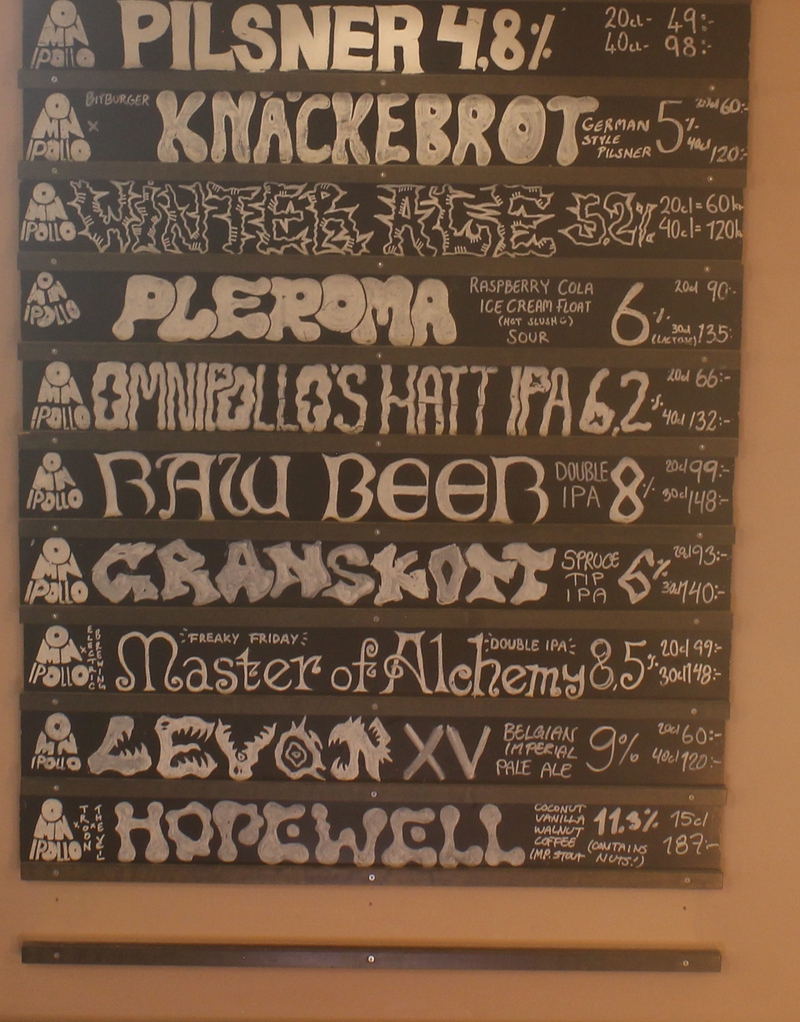 OMNIPOLLO PILSNER 4,8% 20cl- 49:-
40cl- 98:-
OMNIPOLLO × BITBURGER KNÄCKEBROT GERMAN STYLE PILSNER 5%  60:-
40cl 120:-
OMNIPOLLO WINTER ALE 5,2% 20cl = 60kr
40cl = 120kr
OMNIPOLLO PLEROMA RASPBERRY COLA
ICE CREAM FLOAT
(NOT SLUSH)
SOUR
6% 20cl 90:-
(LACTOSE) 30cl 135:-
OMNIPOLLO OMNIPOLLO'S HATT IPA 6,2% 20cl 66:-
40cl 132:-
OMNIPOLLO RAW BEER DOUBLE
IPA
8% 20cl 99:-
30cl 148:-
OMNIPOLLO GRANSKOTT SPRUCE
TIP
IPA
6% 20cl 93:-
30cl 140:-
OMNIPOLLO × ELECTRIC BREWING FREAKY FRIDAY
Master of Alchemy DOUBLE IPA 8,5% 20cl 99:-
30cl 148:-
OMNIPOLLO LEVON XV BELGIAN
IMPERIAL
PALE ALE
9% 20cl 60:-
40cl 120:-
OMNIPOLLO × TROON × THE VEIL HOPEWELL COCONUT
VANILLA
WALNUT
COFFEE
IMP. STOUT
11.3% (CONTAINS NUTS!)
15cl
187:-